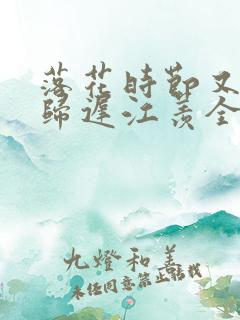 落花時節又
歸遲江羨全
九燈和善
未經同意禁止轉載